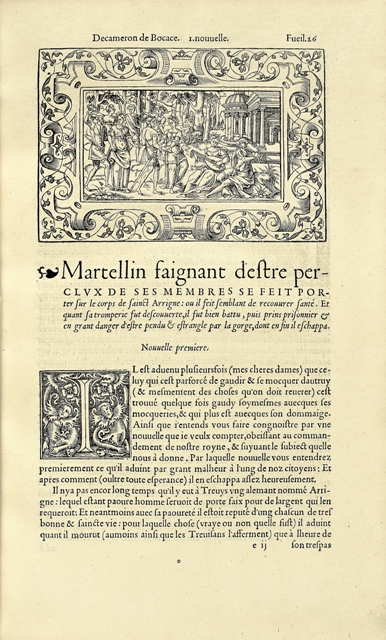 Decameron de Bocace. 1.nouuelle. Fueil.26
Martellin faignant d'estre per-
CLVX DE SES MEMBRES SE FEIT POR-
ter sur le corps de sainct Arrigne: ou il feit semblant de recouurer santé. Et
quant sa tromperie fut descouuerte, il fut bien battu, puis prins prisonnier &
en grant danger d'estre pendu & estrangle par la gorge, dont en fin il eschappa.
Nouuelle premiere.
IL est aduenu plusieursfois (mes cheres dames) que ce-
luy qui c'est parforcé de gaudir & se mocquer dautruy
(& mesmement des choses qu'on doit reuerer) s'est
trouué quelque fois gaudy soymesmes auecques ses
mocqueries, & qui plus est auecques son dommaige.
Ainsi que i'entends vous faire congnoistre par vne
nouuelle que ie veulx compter, obeissant au comman-
dement de nostre royne, & suyuant le subiect quelle
nous à donne. Par laquelle nouuelle vous entendrez
premierement ce qu'il aduint par grant malheur à l'ung de noz citoyens: Et
apres comment (oultre toute esperance) il en eschappa assez heureusement.
Il n'ya pas encor long temps qu'il y eut à Treuys vng alemant nommé Arri-
gne: lequel estant paoure homme seruoit de porte faix pour de largent qui len
requeroit: Et neantmoins auec sa paoureté il estoit reputé d'ung chascun de tres
bonne & saincte vie: pour laquelle chose (vraye ou non quelle fust) il aduint
quant il mourut (aumoins ainsi que les Treuisans l'afferment) que à lheure de
e ij son trespas